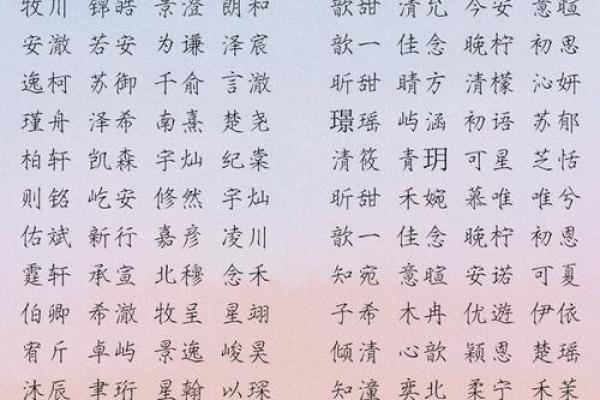 牧川 锦皓 景澄 朗和 歆甜 清允 今安 意暄
安澈 若安 为谦 泽宸 歆一 佳念 晚柠 初恩
逸柯 苏御 千俞 言澈 昕甜 晴方 清檬 沁妍
瑾舟 泽希 南熹 楚尧 璟瑶 屿涵 初语 苏郁
柏轩 凯森 宇灿 纪棠 清筱 青玥 可星 芝恬
则铭 屹安 修然 宇灿 昕甜 禾婉 慕唯 唯兮
佑斌 新行 嘉彦 凌川 歆一 佳念 晚柠 初恩
霆轩 承宣 北穆 念禾 知宛 意暄 安诺 可夏
伯卿 希澈 牧呈 星翊 子希 木冉 优遊 伊依
宥斤 卓屿 景逸 峻昊 倾清 心歆 颖恩 楚瑶
沐辰 聿珩 星翰 以琛 知潼 奕北 柔宁 禾茉